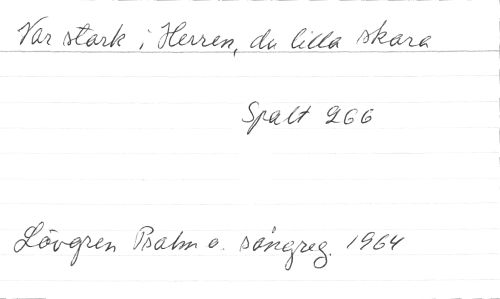 Var stark i Herren, du lilla skara
Spalt 266
Lövgren Psalm o. sångreg. 1964